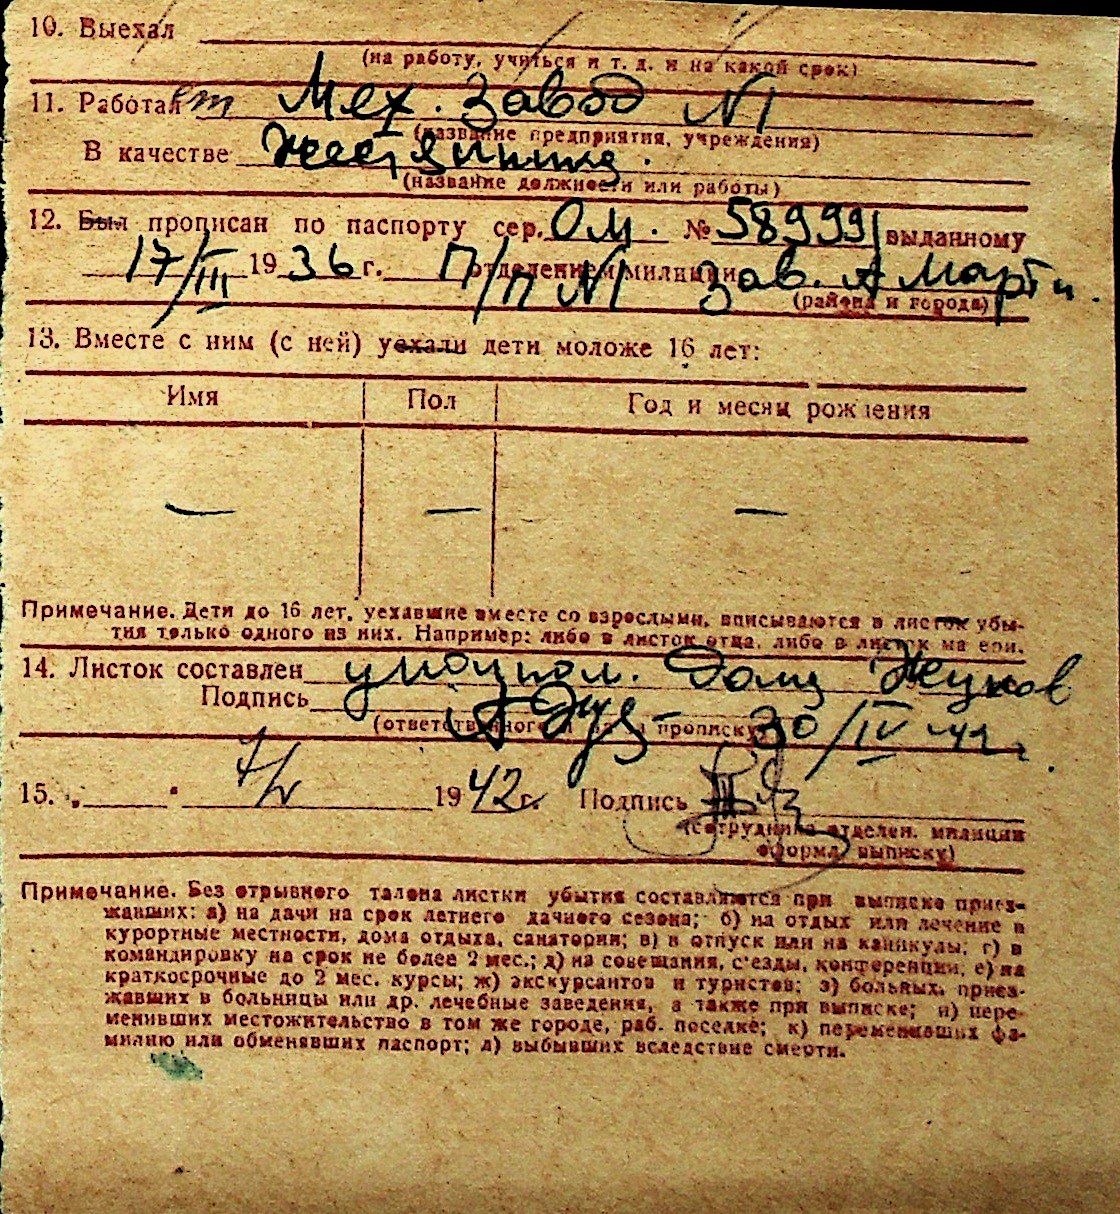 10. Выехал
(на работу, учиться и т. д. и на какой срок)
11. Работал ет Мех. Завод N1
(название предприятия, учреждения)
В качестве
(название должности или работы)
12. Был прописан по паспорту сер. ОМ. № 589991 выданному
17/III 1936 г. П/П N1 отделением милиции Зав. А Марти.
(района и города)
13. Вместе с ним (с ней) уехали дети моложе 16 лет:
Имя Пол Год и месяц рождения
— — —
Примечание. Дети до 16 лет, уехавшие вместе со взрослыми, вписываются в листок убы-
тия только одного из них. Например: либо в листок отца, либо в листок матери.
14. Листок составлен
Подпись 30/IV 42 г.
(ответственного за прописку)
15. „ “ 1942 г. Подпись
(сотрудника отделен. милиции
оформл. выписку)
Примечание. Без отрывного талона листки убытия составляются при выписке приез-
жавших: а) на дачи на срок летнего дачного сезона; б) на отдых или лечение в
курортные местности, дома отдыха, санатории; в) в отпуск или на каникулы; г) в
командировку на срок не более 2 мес.; д) на совещания, с'езды, конференции; е) на
краткосрочные до 2 мес. курсы; ж) экскурсантов и туристов; з) больных, приез-
жавших в больницы или др. лечебные заведения, а также при выписке; и) пере-
менивших местожительство в том же городе, раб. поселке; к) переменивших фа-
милию или обменявших паспорт; л) выбывших вследствие смерти.